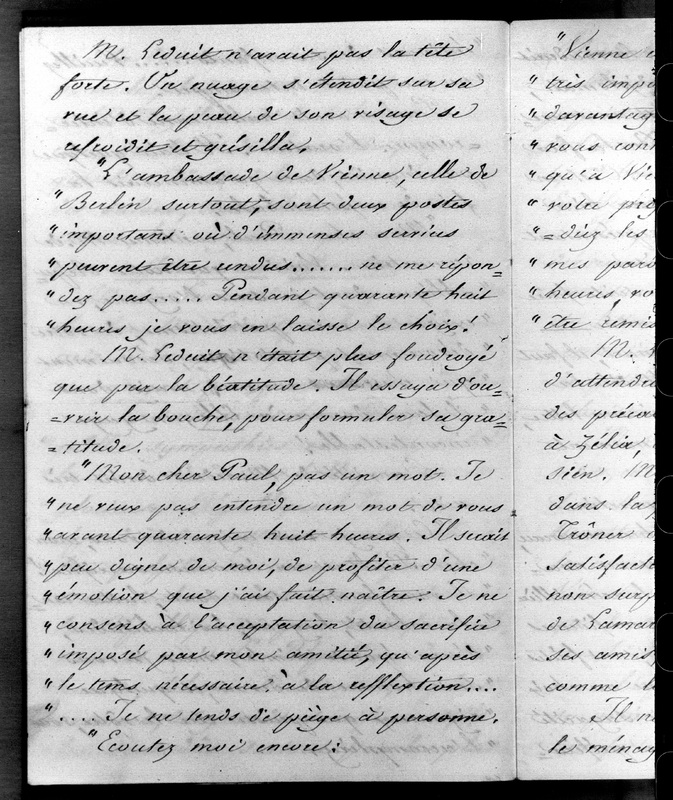 M. Leduit n'avait pas la tête
forte. Un nuage s'étendit sur sa
vue et la peau de son visage se
refroidit et grésilla.
"L'ambassade de Vienne, celle de
"Berlin surtout, sont deux postes
"importans où d'immenses services
"peuvent être rendus....... ne me répon=
"dez pas..... Pendant quarante huit
"heures je vous en laisse le choix!
M. Leduit n'était plus foudroyé
que par la béatitude. Il essaya d'ou-
=vrir la bouche, pour formuler sa gra-
=titude.
"Mon cher Paul, pas un mot. Je
"ne veux pas entendre un mot de vous
"avant quarante huit heures. Il serait
"peu digne de moi, de profiter d'une
"émotion que j'ai fait naître. Je ne
"consens à l'acceptation du sacrifice
"imposé par mon amitié, qu'après
"le tems nécessaire à la refflextion....
".... Je ne tends de piège à personne.
"Ecoutez moi encore:
"Vienne
"très
"davantag
"vous
"qu'à
"votre
"=diez les
"mes
"heures,
"être
M.
d'attendre
des
à Zélia,
sein. M
dans la
Trôner
satisfact
non
de Lamar
ses amis
comme
Il
le ménag